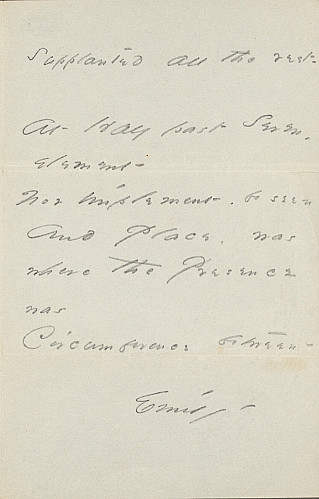 Supplanted all the rest.
At Half past Seven,
Element -
Nor implement, be seen
And Place, was
where the Presence
was
Circumference between -
Emily -